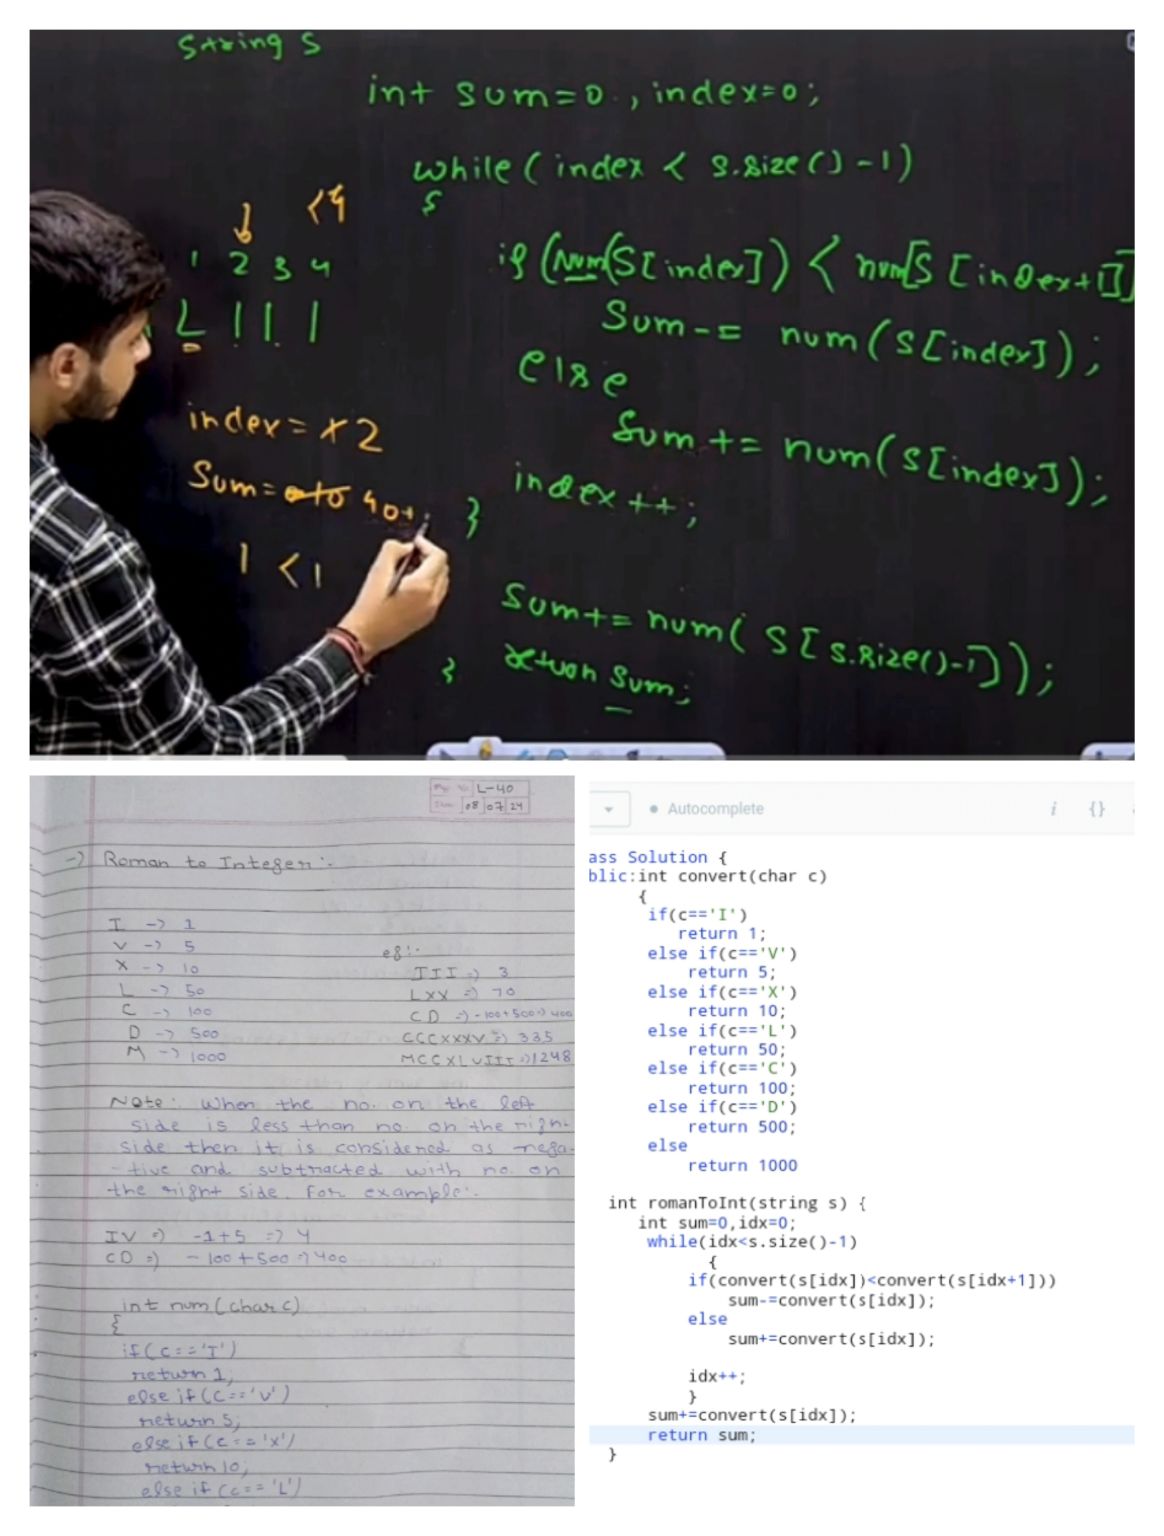 String S
int sum=0, index=0;
while(index < s.size()-1)
{
if(Num(S[index]) < num[S[index+1]]
Sum-= num(s[index]);
else
Sum+= num(s[index]);
index++;
}
Sum+= num(S[s.size()-1]);
return sum;
}
<4
1 2 3 4
L I I I
index=
2
Sum=
40+
1<1
L-40
08 07 24
-> Roman to Integer:-
I -> 1
V -> 5
X -> 10
L -> 50
C -> 100
D -> 500
M -> 1000
eg:-
III => 3
LXX => 70
CD => -100+500=>400
CCCXXXV => 335
MCCXLVIII =>1248
Note: When the no. on the left
side is less than no. on the righ-
side then it is considered as nega-
-tive and subtracted with no. on
the right side. For example:-
IV => -1+5 => 4
CD => -100+500=>400
int num(char c)
{
if(c=='I')
return 1;
else if(c=='V')
return 5;
else if(c=='X')
return 10;
else if(c=='L')
Autocomplete
i {}
ass Solution {
blic:int convert(char c)
{
if(c=='I')
return 1;
else if(c=='V')
return 5;
else if(c=='X')
return 10;
else if(c=='L')
return 50;
else if(c=='C')
return 100;
else if(c=='D')
return 500;
else
return 1000
int romanToInt(string s) {
int sum=0,idx=0;
while(idx<s.size()-1)
{
if(convert(s[idx])<convert(s[idx+1]))
sum-=convert(s[idx]);
else
sum+=convert(s[idx]);
idx++;
}
sum+=convert(s[idx]);
return sum;
}